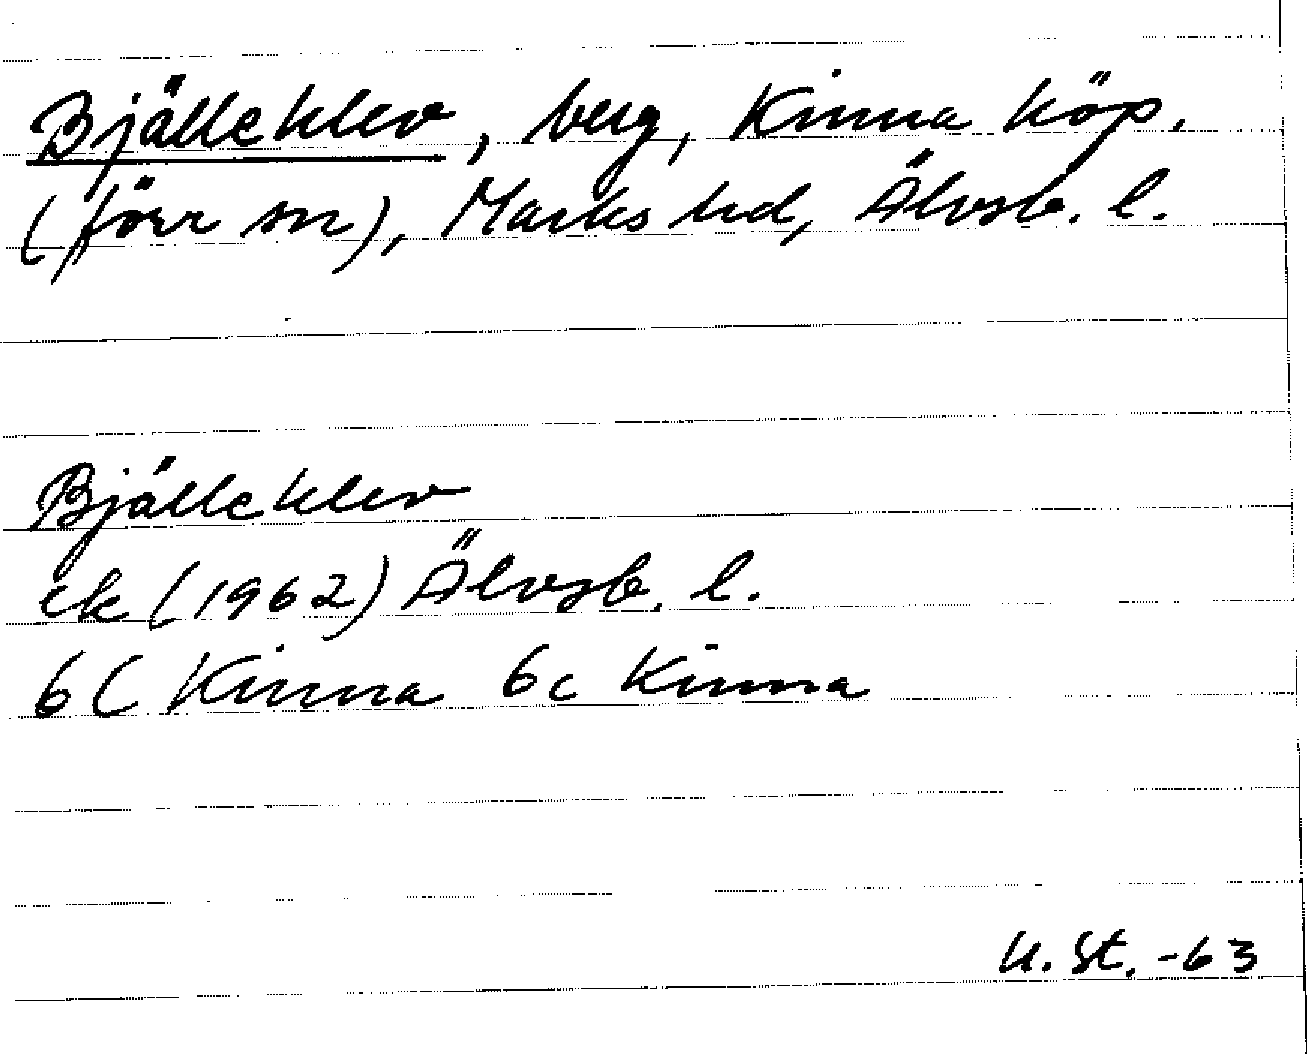 Bjälleklev, berg, Kinna köp.
(förr sn), Marks hd, Älvsb. l.
Bjälleklev
ek (1962) Älvsb. l.
6C Kinna 6c Kinna
K. St. -63